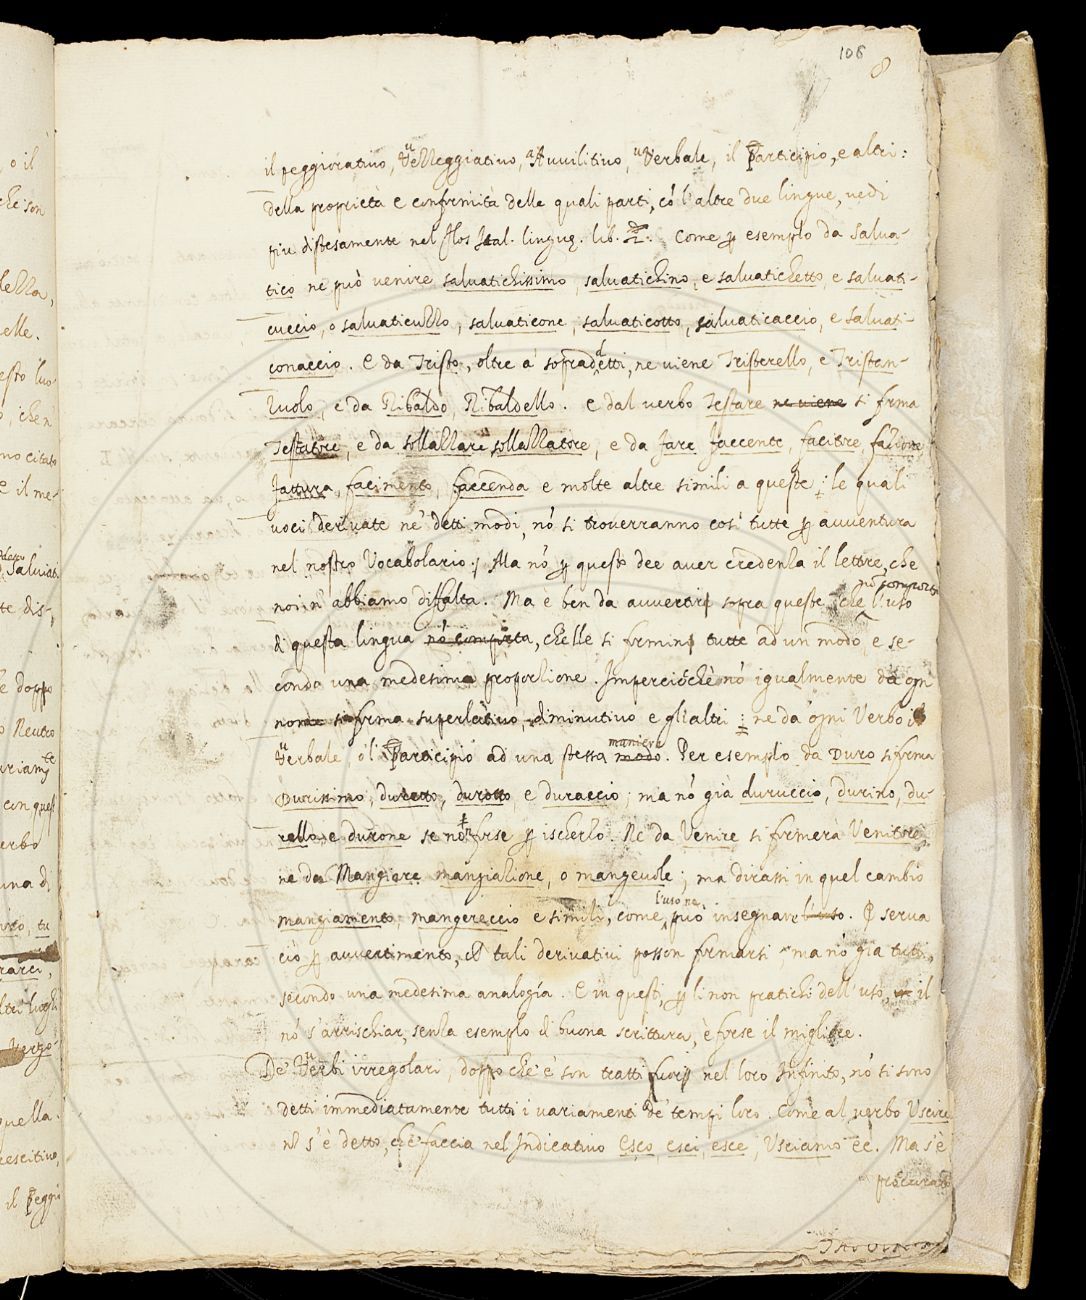 106
8
il peggiorativo, Vezzeggiativo, Avvilitivo, Verbale, il Participio, e altri:
della proprietà e conformità delle quali parti, cō l'altre due lingue, vedi
piu distesamente nel flos Ital. linguę. lib. 2. Come ꝑ esemplo da Salva-
tico ne può venire salvatichissimo, salvatichino, e salvatichetto, e salvati-
cuccio, o salvaticuzzo, salvaticone, salvaticotto, salvaticaccio, e salvati-
conaccio. E da Tristo, oltre a' sopradetti, ne viene Tristerello, e Tristan-
zuolo, e da Ribaldo, Ribaldello. E dal verbo Testare ne viene si forma
Testatore, e da sollazzare sollazzatore, e da fare faccente, facitore, fazione
fattura, facimento, faccenda e molte altre simili a queste: le quali
voci derivate ne' detti modi, nō si troverranno così tutte ꝑ avventura
nel nostro Vocabolario: Ma nō ꝑ questo dee aver credenza il lettore, che
noi n' abbiamo diffalta. Ma è ben da avvertire sopra queste, che l'uso
nō comporta
di questa lingua nō comporta, ch'elle si formino tutte ad un modo, e se-
conda una medesima proporzione. Imperciocchè nō igualmente da ogni
nome si forma superlativo, diminutivo e gli altri: ne da ogni Verbo il
Verbale o 'l Participio ad una stessa modo maniera. Per esemplo da Duro si forma
Durissimo, duretto, durotto e duraccio; ma nō già duruccio, durino, du-
rello, e durone se nō forse ꝑ ischerzo. Ne da Venire si formerà Venitore
ne da Mangiare mangiazione, o mangevole; ma dirassi in quel cambio
mangiamento, mangereccio e simili, come l'uso ne può insegnare l'uso. E serva
ciò ꝑ avvertimento, che tali derivativi posson formarsi, ma nō già tutti
secondo una medesima analogía. E in questi, ꝑ li non pratichi dell'uso il
nō s'arrischiar, senza esemplo di buona scrittura, è forse il migliore.
De' Verbi irregolari, doppo che e' son tratti fuori nel loro Infinito, nō si sono
detti immediatamente tutti i variamenti de' tempi loro. Come al verbo Uscire
nō s'è detto, che faccia nel Indicativo Esco, esci, esce, Usciamo ec. Ma s'è
proccurato